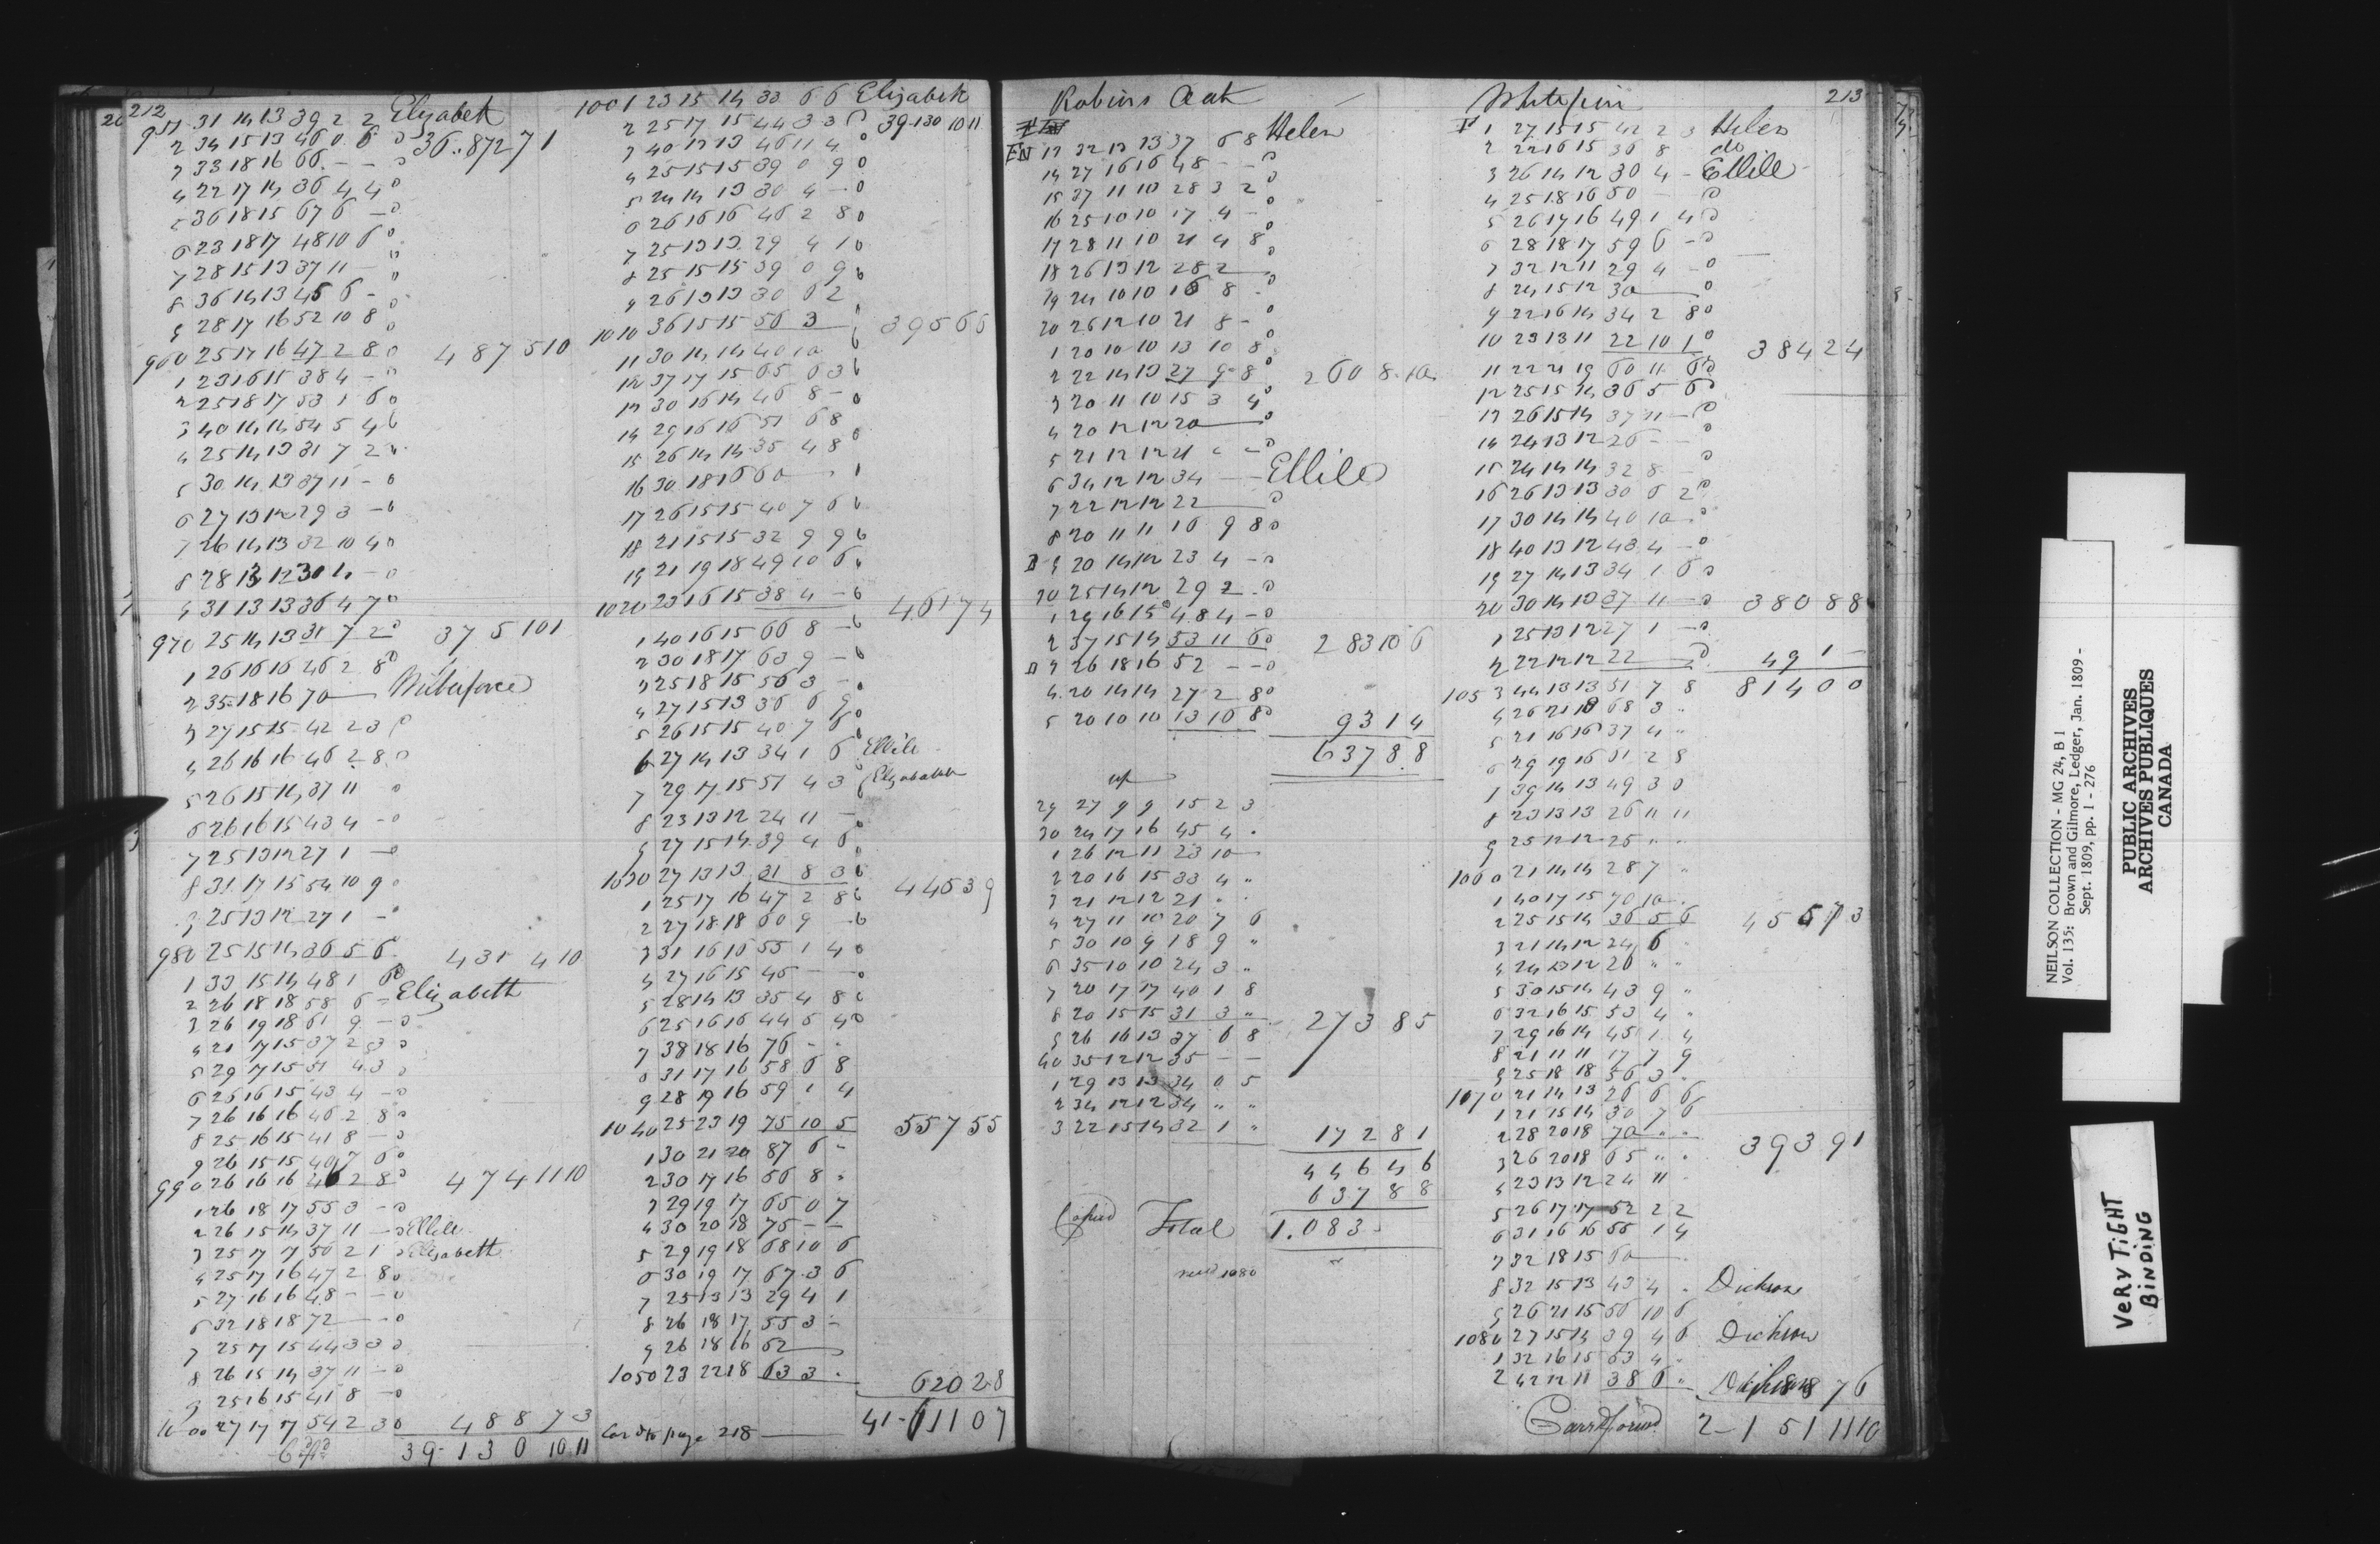 212
951 31 14 13 39 2 2 Elizabeth
2 34 15 13 46 0 6 0 36..872 7 1
3 33 18 16 66 - - 0
4 22 17 14 36 4 4 0
5 36 18 15 67 6 - 0
6 23 18 17 48 10 6 0
7 28 15 13 37 11 - 0
8 36 14 13 45 6 - 0
9 28 17 16 52 10 8 0
960 25 17 16 47 2 8 0 487 5 10
1 23 16 15 38 4 - 0
2 25 18 17 53 1 6 0
3 40 14 14 54 5 4 0
4 25 14 13 31 7 2 0
5 30 14 13 37 11 - 0
6 27 13 12 29 3 - 0
7 26 14 13 32 10 4 0
8 28 13 12 30 4 - 0
9 31 13 13 36 4 7 0
970 25 14 13 31 7 2 0 375 10 1
1 26 16 16 46 2 8 0
2 35 18 16 70 Wilberforce
3 27 15 15 42 2 3 0
4 26 16 16 46 2 8 0
5 26 15 14 37 11 0
6 26 16 15 43 4 - 0
7 25 13 12 27 1 - 0
8 31 17 15 54 10 9 0
9 25 13 12 27 1 - 0
980 25 15 14 36 5 6 431 4 10
1 33 15 14 48 1 6 0
2 26 18 18 58 6 - Elizabeth
3 26 19 18 61 9 - 0
4 21 17 15 37 2 3 0
5 29 17 15 51 4 3 0
6 26 16 15 43 4 - 0
7 26 16 16 46 2 8 0
8 25 16 15 41 8 - 0
9 26 15 15 40 7 6 0
990 26 16 16 46 2 8 0 474 11 10
1 26 18 17 55 3 - 0
2 26 15 14 37 11 - 0 Ellile
3 25 17 17 50 2 1 0 Elizabeth
4 25 17 16 47 2 8 0
5 27 16 16 48 - - 0
6 32 18 18 72 - 0
7 25 17 15 44 3 3 0
8 26 15 14 37 11 - 0
9 25 16 15 41 8 - 0
1000 27 17 17 54 2 3 0 488 7 3
39-130 10 11
1001 23 15 14 33 6 6 Elizabeth
2 25 17 15 44 3 3 0 39-130 10 11
3 40 13 13 46 11 4 0
4 25 15 15 39 0 9 0
5 24 14 13 30 4 - 0
6 26 16 16 46 2 8 0
7 25 13 13 29 4 1 0
8 25 15 15 39 0 9 0
9 26 13 13 30 6 2
1010 36 15 15 56 3 395 6 6
11 30 14 14 40 10 0
12 37 17 15 65 6 3 0
13 30 16 14 46 8 - 0
14 29 16 16 51 6 8
15 26 14 14 35 4 8 0
16 30 18 16 60
17 26 15 15 40 7 6 0
18 21 15 15 32 9 9 0
19 21 19 18 49 10 6
1020 23 16 15 38 4 - 0 461 7 4
1 40 16 15 66 8 - 0
2 30 18 17 63 9 - 0
3 25 18 15 56 3 - 0
4 27 15 13 36 6 9 0
5 26 15 15 40 7 6 0
6 27 14 13 34 1 6 Ellile
7 29 17 15 51 4 3 Elizabeth
8 23 13 12 24 11 -
9 27 15 14 39 4 6
1030 27 13 13 31 8 3 0 445 3 9
1 25 17 16 47 2 8 0
2 27 18 18 60 9 - 0
3 31 16 16 55 1 4 0
4 27 16 15 45 - - 0
5 28 14 13 35 4 8 0
6 25 16 16 44 5 4 0
7 38 18 16 76 - -
8 31 17 16 58 6 8
9 28 19 16 59 1 4
1040 25 23 19 75 10 5 557 5 5
1 30 21 20 87 6 -
2 30 17 16 56 8 "
3 29 19 17 65 0 7
4 30 20 18 75 - -
5 29 19 18 68 10 6
6 30 19 17 67 3 6
7 25 13 13 29 4 1
8 26 18 17 55 3 -
9 26 18 16 52
1050 23 22 18 63 3 . 620 2 8
Car'd to page 218 41-611 0 7
Robins Oak
EN 13 32 13 13 37 6 8 Helen
14 27 16 16 48 - - 0
15 37 11 10 28 3 2 0
16 25 10 10 17 4 - 0
17 28 11 10 21 4 8 0
18 26 13 12 28 2 0
19 24 10 10 16 8 - 0
20 26 12 10 21 8 - 0
1 20 10 10 13 10 8 0
2 22 14 13 27 9 8 0 260 8 10
3 20 11 10 15 3 4 0
4 20 12 12 20 0
5 21 12 12 21 - - 0
6 34 12 12 34 Ellile
7 22 12 12 22 0
8 20 11 11 16 9 8 0
9 20 14 12 23 4 - 0
30 25 14 12 29 2 - 0
1 29 16 15 48 4 - 0
2 37 15 14 53 11 6 0 283 10 6
3 26 18 16 52 - - 0
4 20 14 14 27 2 8 0
5 20 10 10 13 10 8 0 93 1 4
637 8.8
29 27 9 9 15 2 3
30 24 17 16 45 4 .
1 26 12 11 23 10
2 20 16 15 33 4 "
3 21 12 12 21 " "
4 27 11 10 20 7 6
5 30 10 9 18 9 "
6 35 10 10 24 3 "
7 20 17 17 40 1 8
8 20 15 15 31 3 " 273 8 5
9 26 16 13 37 6 8
40 35 12 12 35 - -
1 29 13 13 34 0 5
2 34 12 12 34 " "
3 22 15 14 32 1 " 172 8 1
446 4 6
637 8 8
Copied Total 1.083 -
213
White pine
1 27 15 15 42 2 3 Helen
2 22 16 15 36 8 do
3 26 14 12 30 4 - Ellile
4 25 18 16 50 - 0
5 26 17 16 49 1 4 0
6 28 18 17 59 6 - 0
7 32 12 11 29 4 - 0
8 24 15 12 30 0
9 22 16 14 34 2 8 0
10 23 13 11 22 10 1 0 384 2 4
11 22 21 19 60 11 6 0
12 25 15 14 36 5 6 0
13 26 15 14 37 11 - 0
14 24 13 12 26 - - 0
15 24 14 14 32 8 - 0
16 26 13 13 30 6 2 0
17 30 14 14 40 10 - 0
18 40 13 12 43 4 - 0
19 27 14 13 34 1 6 0
20 30 14 13 37 11 - 0 380 8 8
1 25 13 12 27 1 - 0
2 22 12 12 22 0 49 1 -
1053 44 13 13 51 7 8 814 0 0
4 26 21 18 68 3 "
5 21 16 16 37 4 "
6 29 19 16 61 2 8
7 39 14 13 49 3 0
8 23 13 13 26 11 11
9 25 12 12 25 " "
1060 21 14 14 28 7 "
1 40 17 15 70 10 "
2 25 15 14 36 5 6 455 7 3
3 21 14 12 24 6 "
4 24 13 12 26 " "
5 30 15 14 43 9 "
6 32 16 15 53 4 "
7 29 16 14 45 1 4
8 21 11 11 17 7 9
9 25 18 18 56 3 "
1070 21 14 13 26 6 6
1 21 15 14 30 7 6
2 28 20 18 70 " " 393 9 1
3 26 20 18 65 " "
4 23 13 12 24 11
5 26 17 17 52 2 2
6 31 16 16 55 1 4
7 32 18 15 60
8 32 15 13 43 4 " Dickson
9 26 21 15 56 10 6
1080 27 15 14 39 4 6 Dickson
1 32 16 15 53 4 "
2 42 12 11 38 6 "
Carr'd forwd. 2-151 11 10
NEILSON COLLECTION - MG 24, B 1
Vol. 135: Brown and Gilmore, Ledger, Jan. 1809 -
Sept. 1809, pp. 1 - 276
PUBLIC ARCHIVES
ARCHIVES PUBLIQUES
CANADA
VERY TIGHT
BINDING